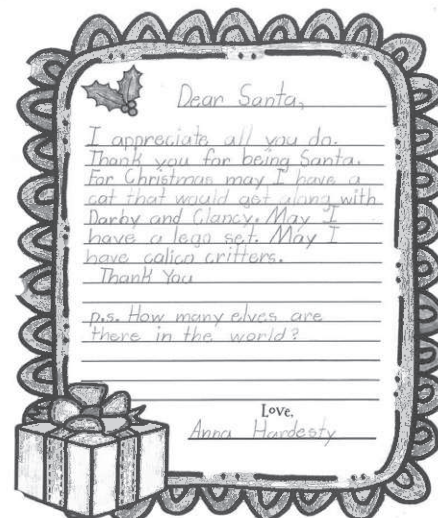 Dear Santa,
I appreciate all you do.
Thank you for being Santa.
For Christmas may I have a
cat that would get along with
Darby and Clancy. May I
have a lego set. May I
have calico critters.
Thank You
p.s. How many elves are
there in the world?
Love,
Anna Hardesty